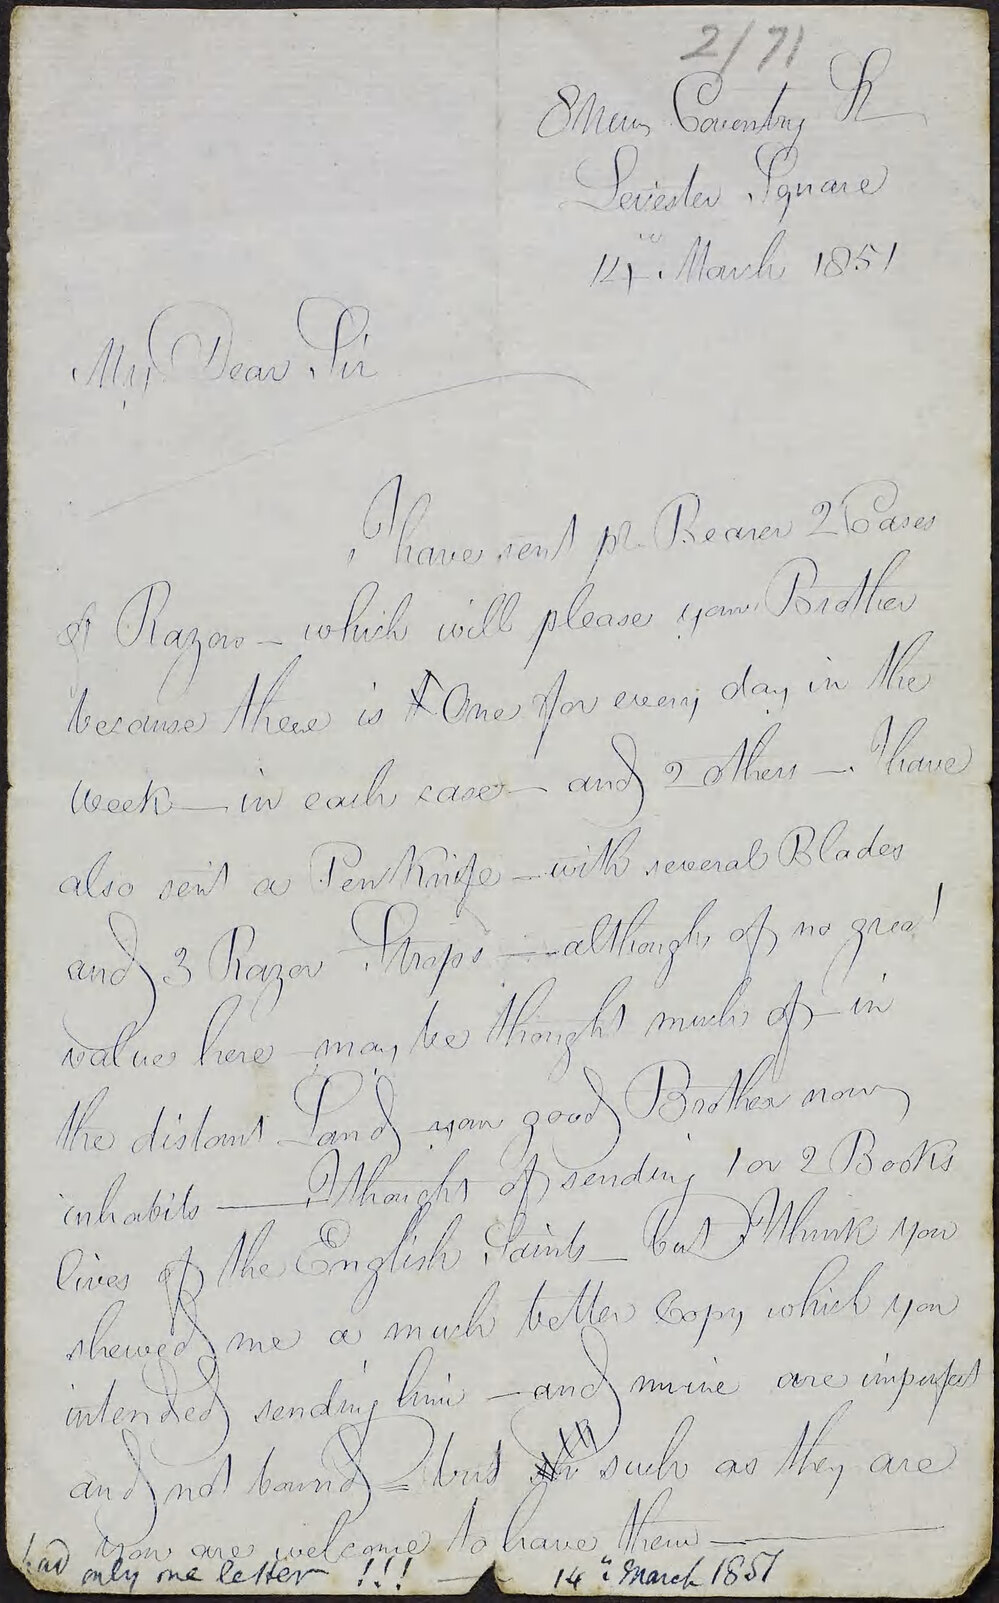 2/71
8 New Coventry St
Leicester Square
14th March 1851
My Dear Sir
I have sent pr. Bearer 2 Cases
of Razors – which will please your Brother
because there is One for every day in the
week – in each case – and 2 others – I have
also sent a PenKnife – with several Blades
and 3 Razor Strops – although of no great
value here – may be thought much of – in
the distant Land your good Brother now
inhabits — I thought of sending 1 or 2 Books
lives of the English Saints – but I think you
shewed me a much better Copy which you
intended sending him – and mine are imperfect
and not bound = but such as they are
you are welcome to have them —
had only one letter !!! — 14th March 1851